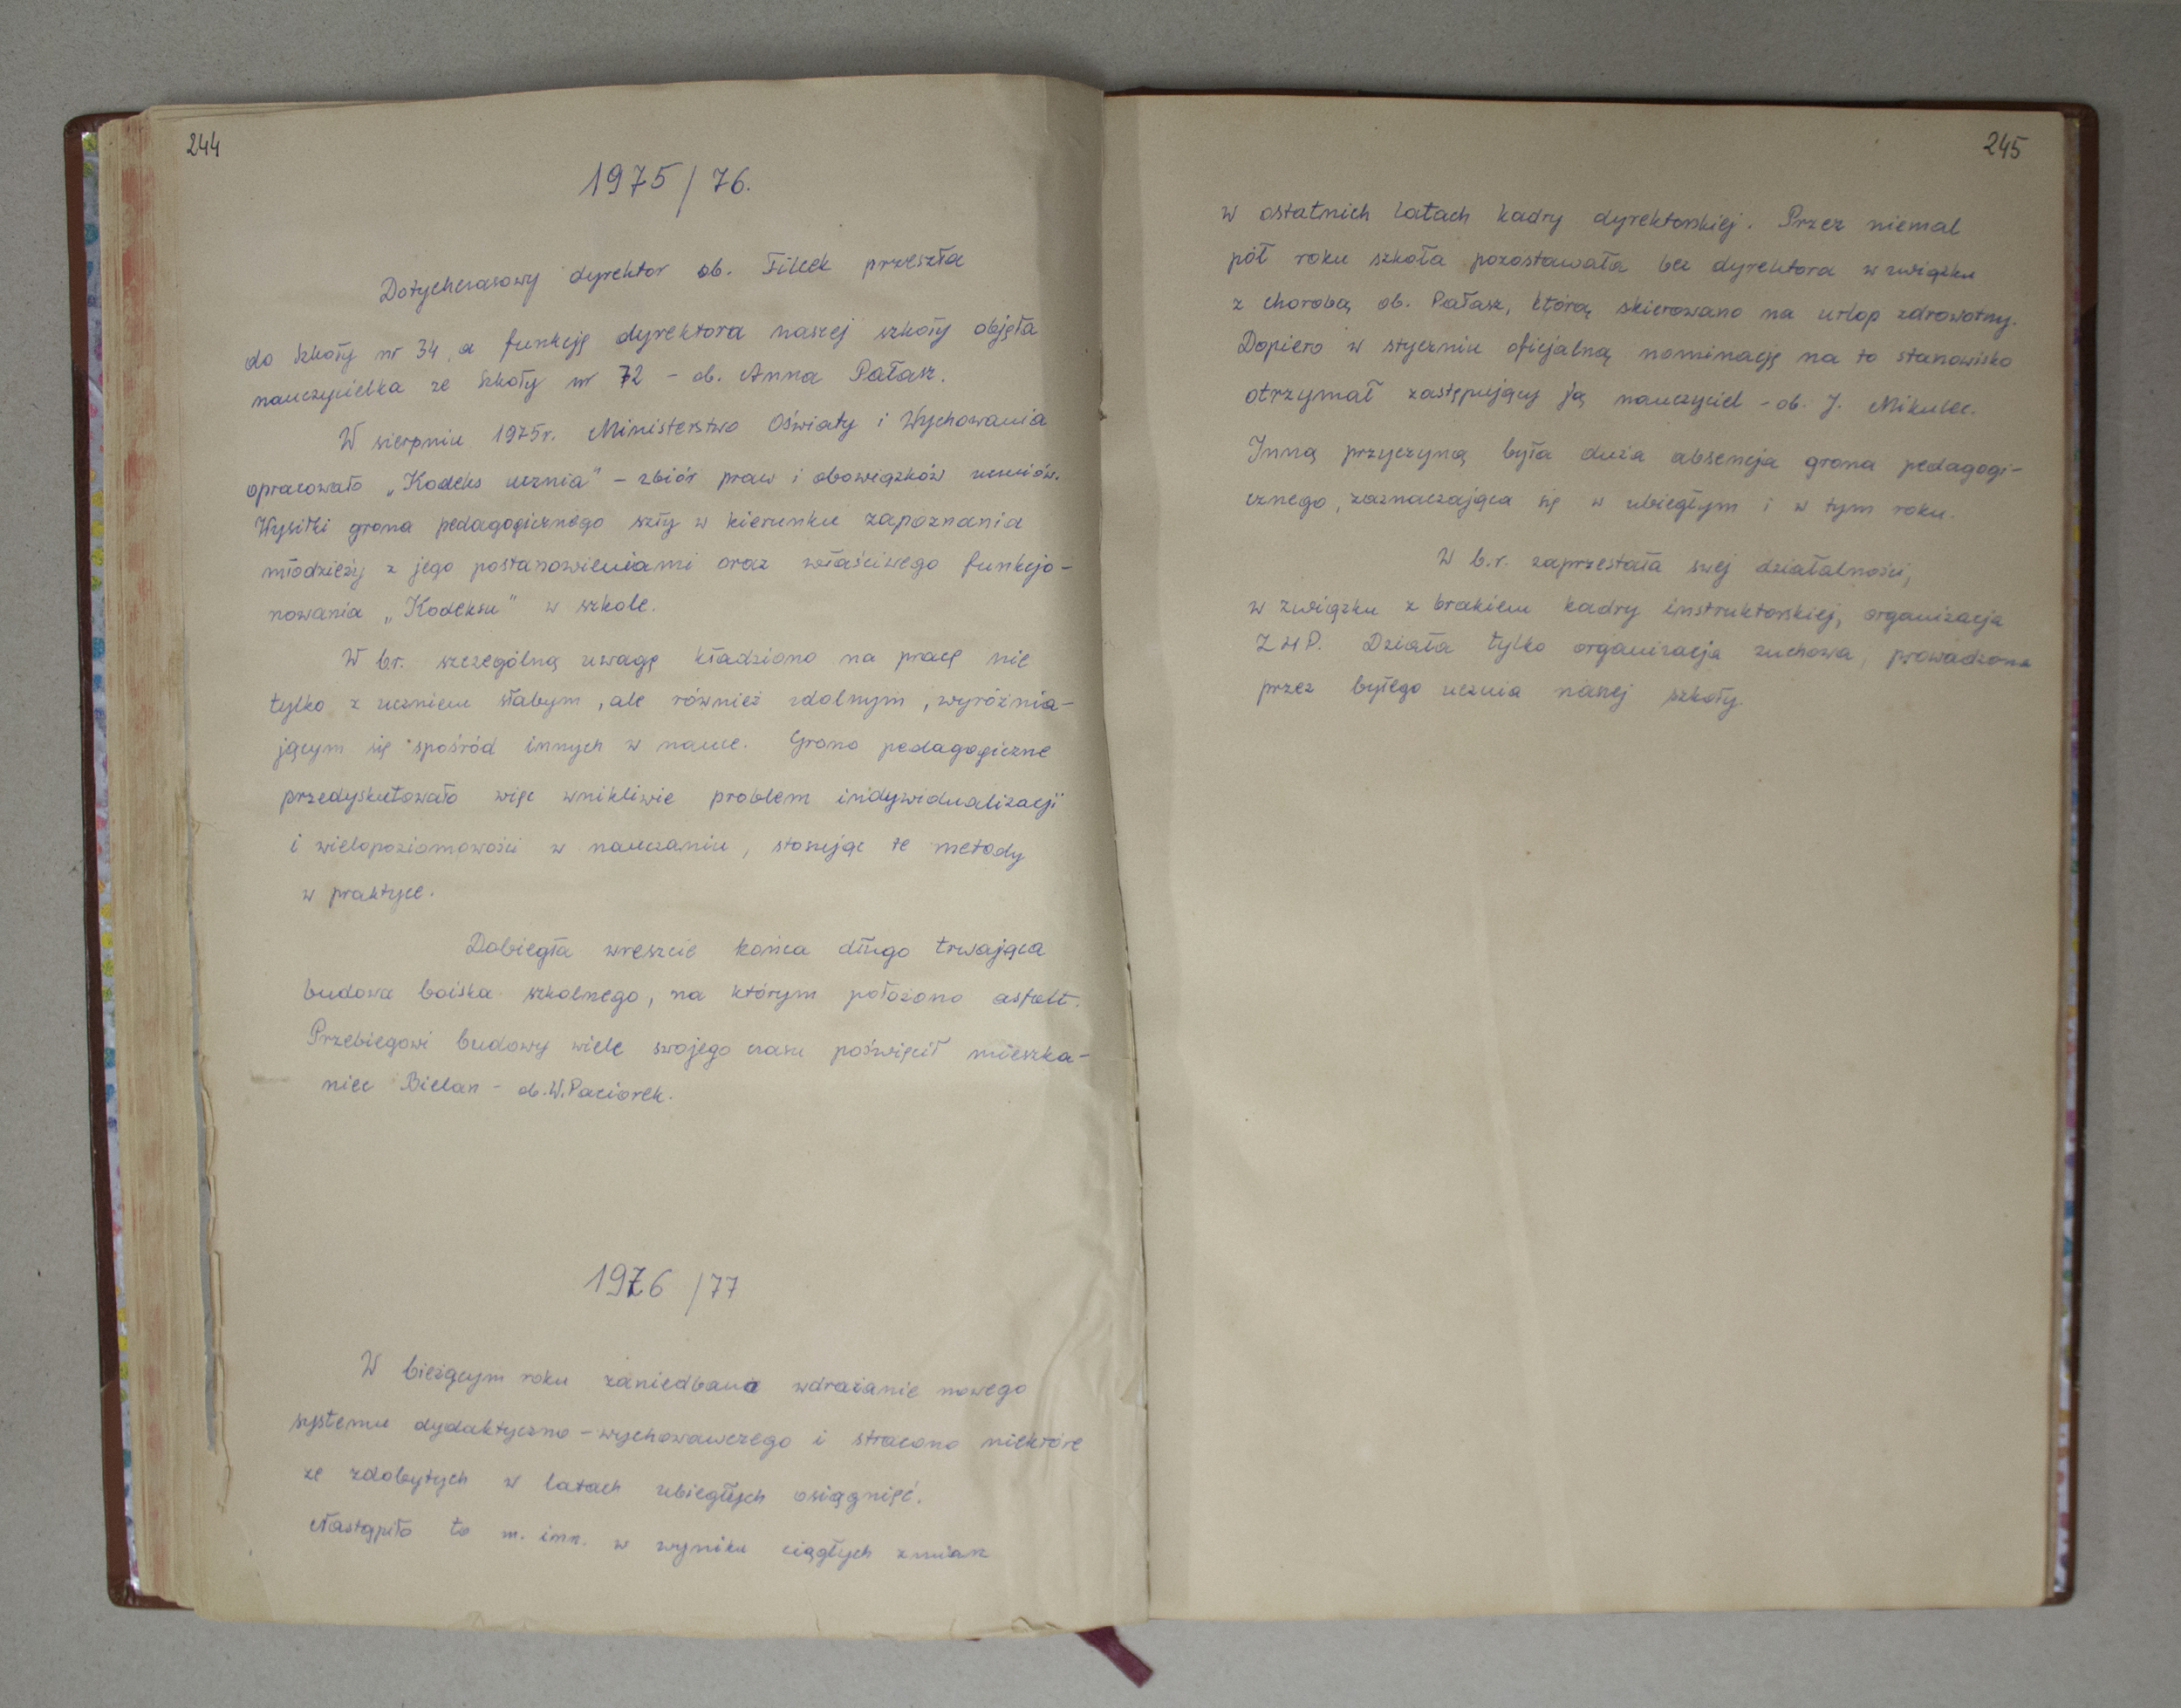 244
1975/76.
Dotychczasowy dyrektor ob. Filcek przeszła
do Szkoły nr 34, a funkcję dyrektora naszej szkoły objęła
nauczycielka ze Szkoły nr 72 - ob. Anna Pałasz.
W sierpniu 1975r. Ministerstwo Oświaty i Wychowania
opracowało „Kodeks ucznia" - zbiór praw i obowiązków uczniów.
Wysiłki grona pedagogicznego szły w kierunku zapoznania
młodzieży z jego postanowieniami oraz właściwego funkcjo-
nowania „Kodeksu" w szkole.
W br. szczególną uwagę kładziono na pracę nie
tylko z uczniem słabym, ale również zdolnym, wyróżnia-
jącym się spośród innych w nauce. Grono pedagogiczne
przedyskutowało więc wnikliwie problem indywidualizacji
i wielopoziomowości w nauczaniu, stosując te metody
w praktyce.
Dobiegła wreszcie końca długo trwająca
budowa boiska szkolnego, na którym położono asfalt.
Przebiegowi budowy wiele swojego czasu poświęcił mieszka-
niec Bielan - ob. W. Paciorek.
1976/77
W bieżącym roku zaniedbano wdrażanie nowego
systemu dydaktyczno-wychowawczego i stracono niektóre
ze zdobytych w latach ubiegłych osiągnięć.
Nastąpiło to m. inn. w wyniku ciągłych zmian
245
w ostatnich latach kadry dyrektorskiej. Przez niemal
pół roku szkoła pozostawała bez dyrektora w związku
z chorobą ob. Pałasz, którą skierowano na urlop zdrowotny.
Dopiero w styczniu oficjalną nominację na to stanowisko
otrzymał zastępujący ją nauczyciel - ob. J. Mikulec.
Inną przyczyną była duża absencja grona pedagogi-
cznego, zaznaczająca się w ubiegłym i w tym roku.
W b.r. zaprzestała swej działalności,
w związku z brakiem kadry instruktorskiej, organizacja
ZHP. Działa tylko organizacja zuchowa, prowadzona
przez byłego ucznia naszej szkoły.